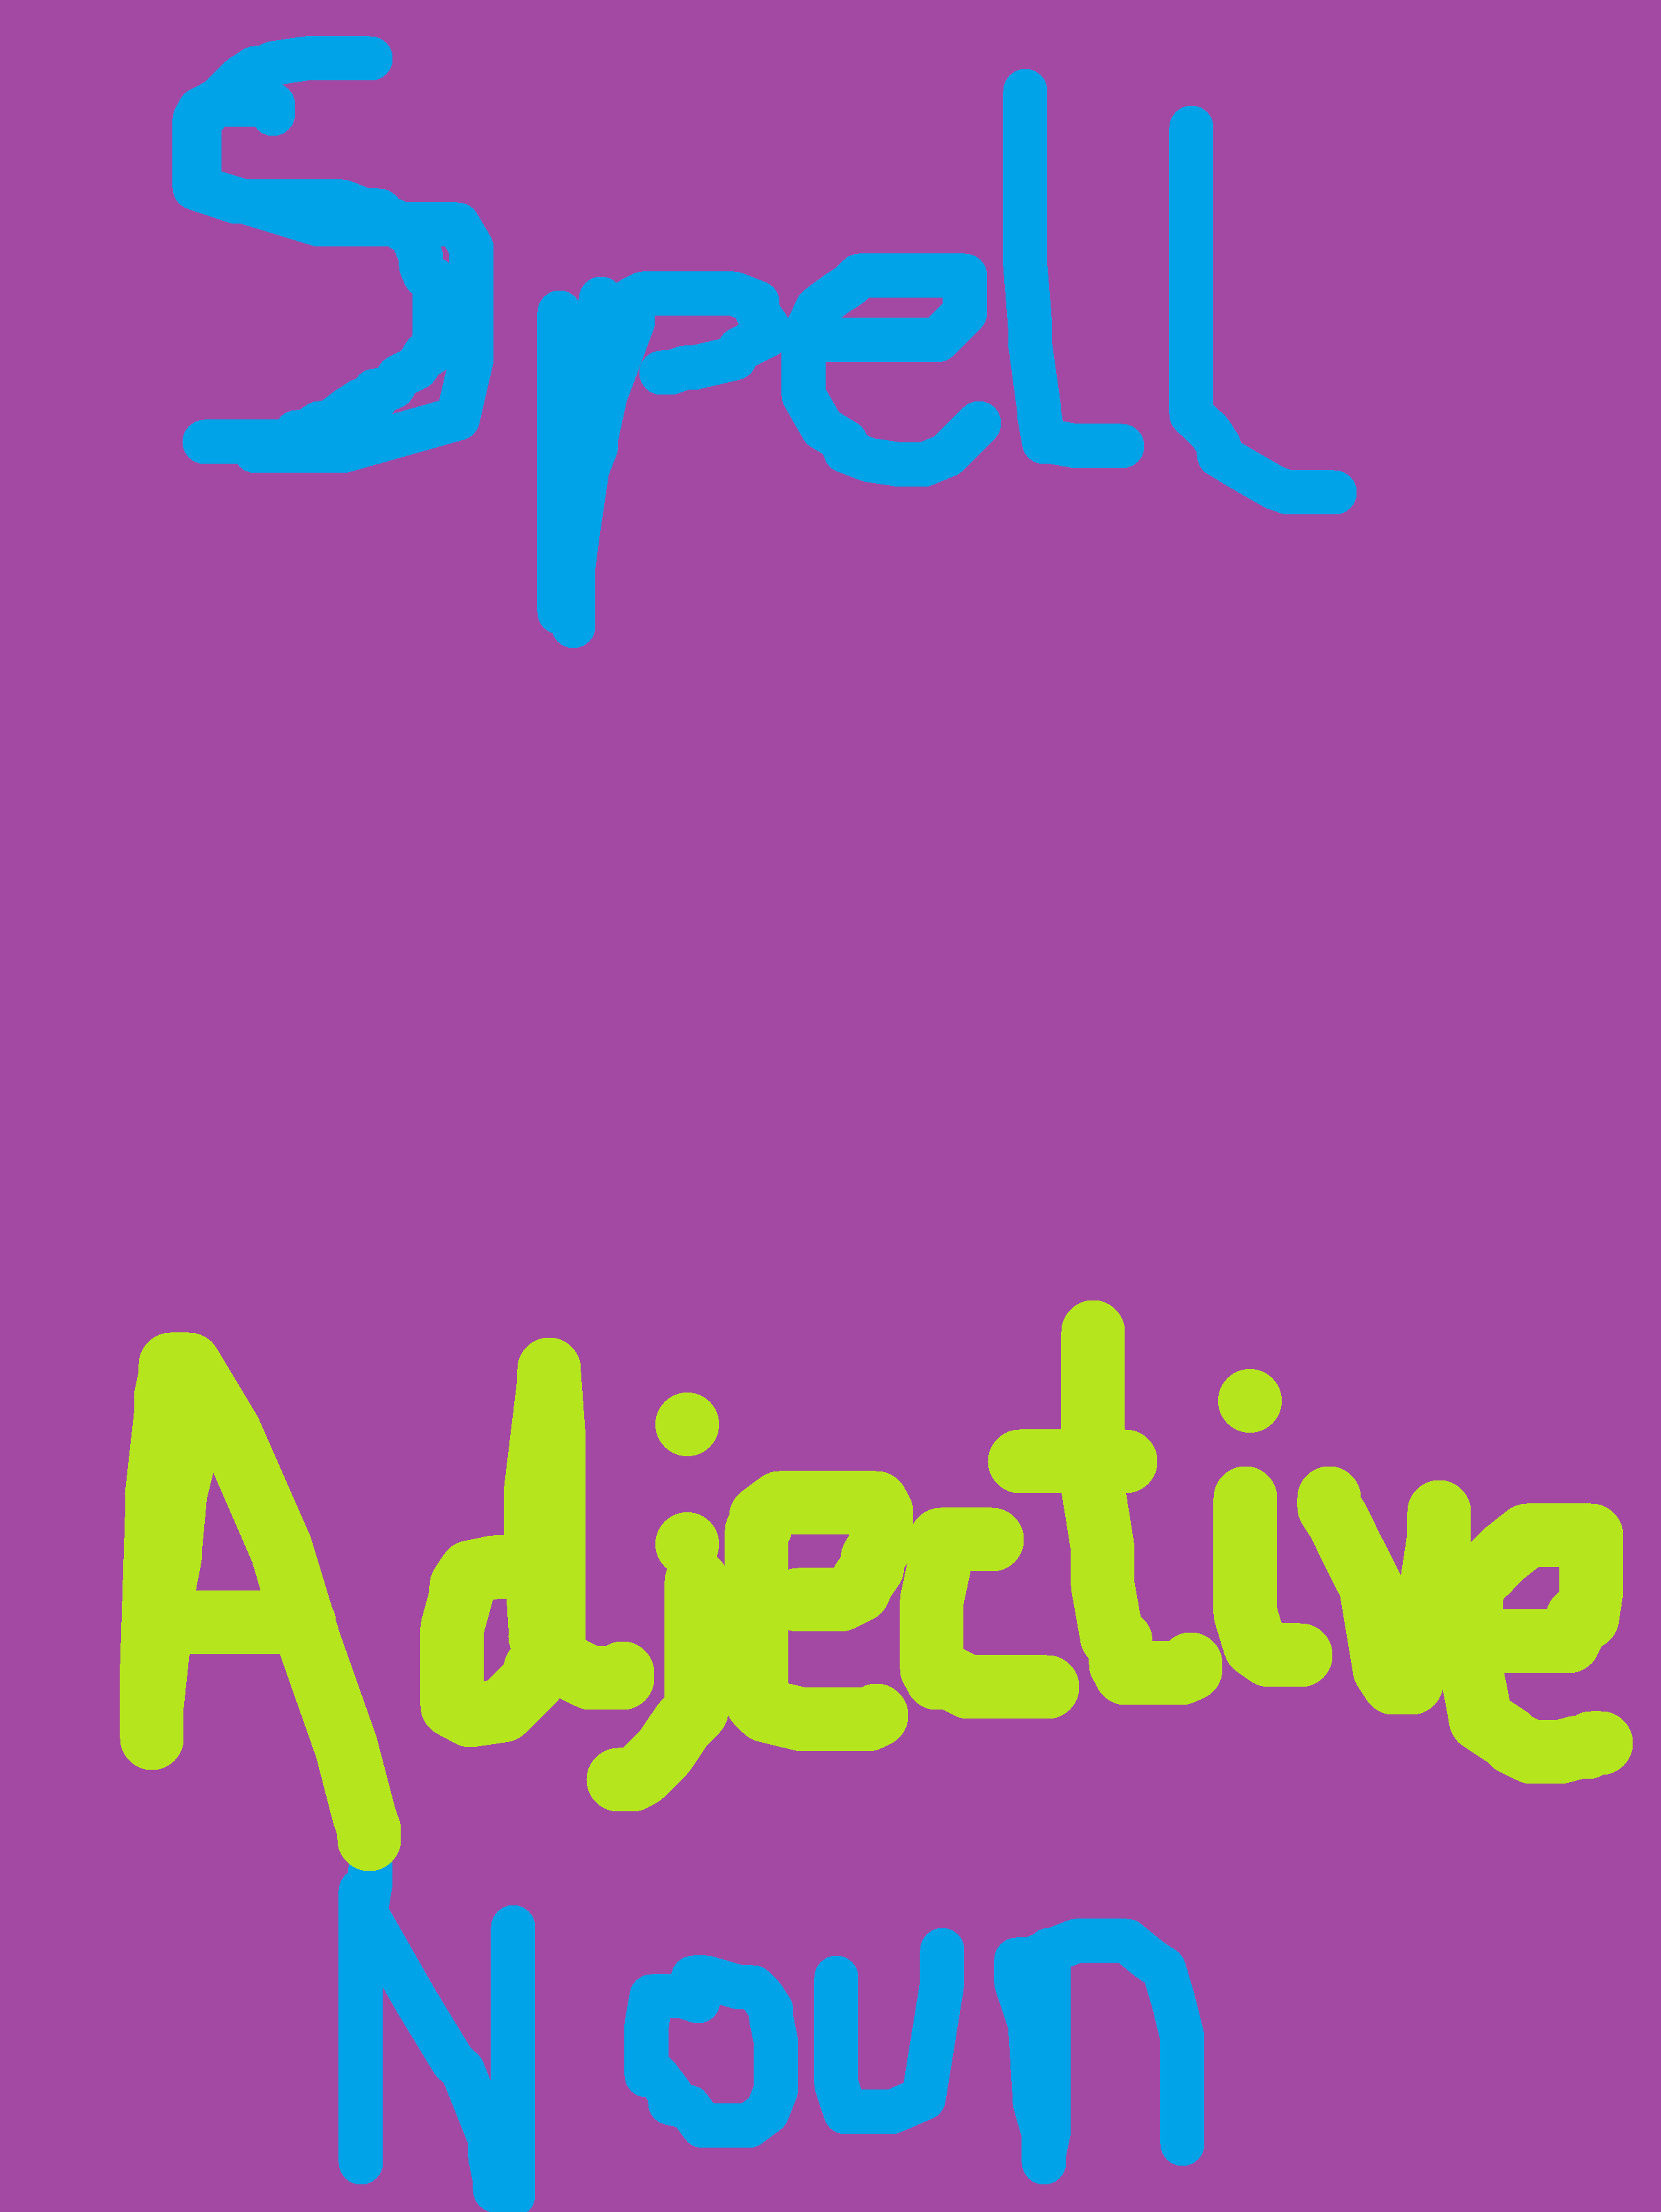 Spell
Adjective
Noun